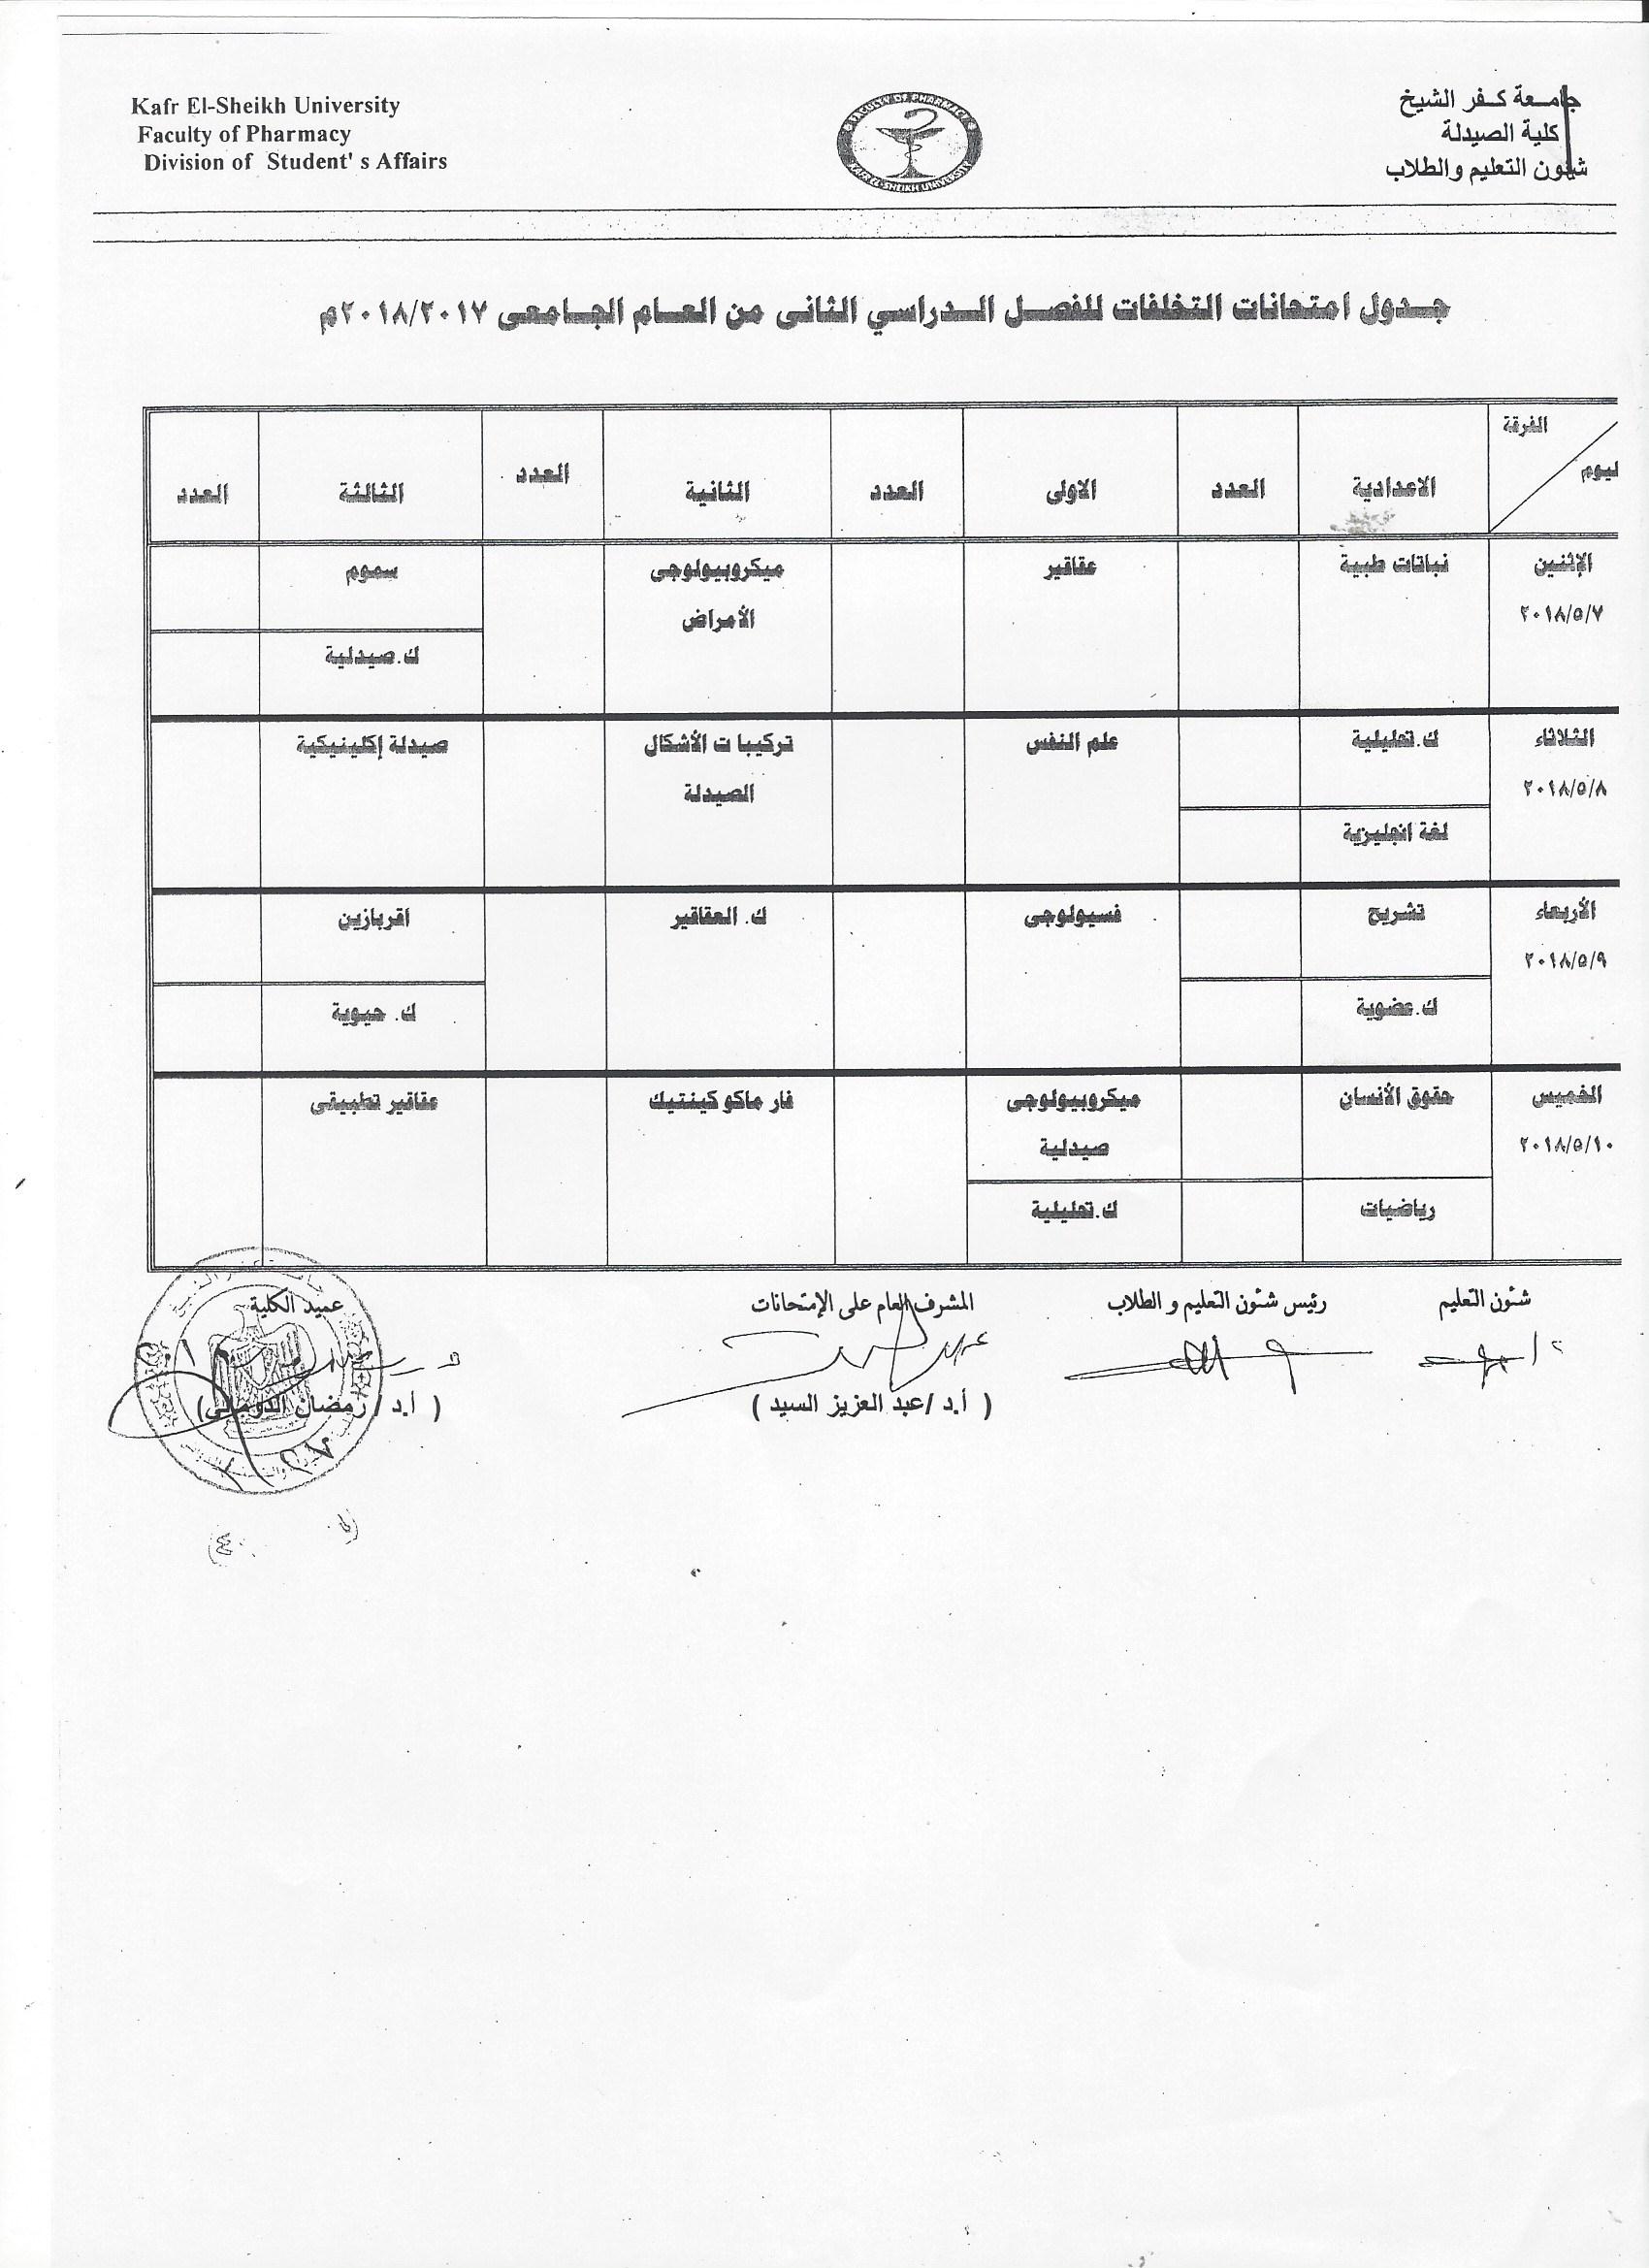 Kafr El-Sheikh University
Faculty of Pharmacy
Division of Student' s Affairs
FACULTY OF PHARMACY
KAFR EL-SHEIKH UNIVERSITY
جامعة كفر الشيخ
كلية الصيدلة
شئون التعليم والطلاب
جدول امتحانات التخلفات للفصل الدراسي الثانى من العام الجامعى ٢٠١٨/٢٠١٧م
الفرقة
ليوم
الاعدادية العدد الاولى العدد الثانية العدد الثالثة العدد
الإثنين نباتات طبية عقاقير ميكروبيولوجى سموم
٢٠١٨/٥/٧ الأمراض
ك.صيدلية
الثلاثاء ك.تحليلية علم النفس تركيبا ت الأشكال صيدلة إكلينيكية
٢٠١٨/٥/٨ الصيدلة
لغة انجليزية
الأربعاء تشريح فسيولوجى ك. العقاقير أقربازين
٢٠١٨/٥/٩
ك.عضوية ك. حيوية
الخميس حقوق الأنسان ميكروبيولوجى فار ماكو كينتيك عقاقير تطبيقى
٢٠١٨/٥/١٠ صيدلية
رياضيات ك.تحليلية
شئون التعليم رئيس شئون التعليم و الطلاب المشرف العام على الإمتحانات عميد الكلية
( أ.د /عبد العزيز السيد ) ( أ.د / رمضان الدوماني)